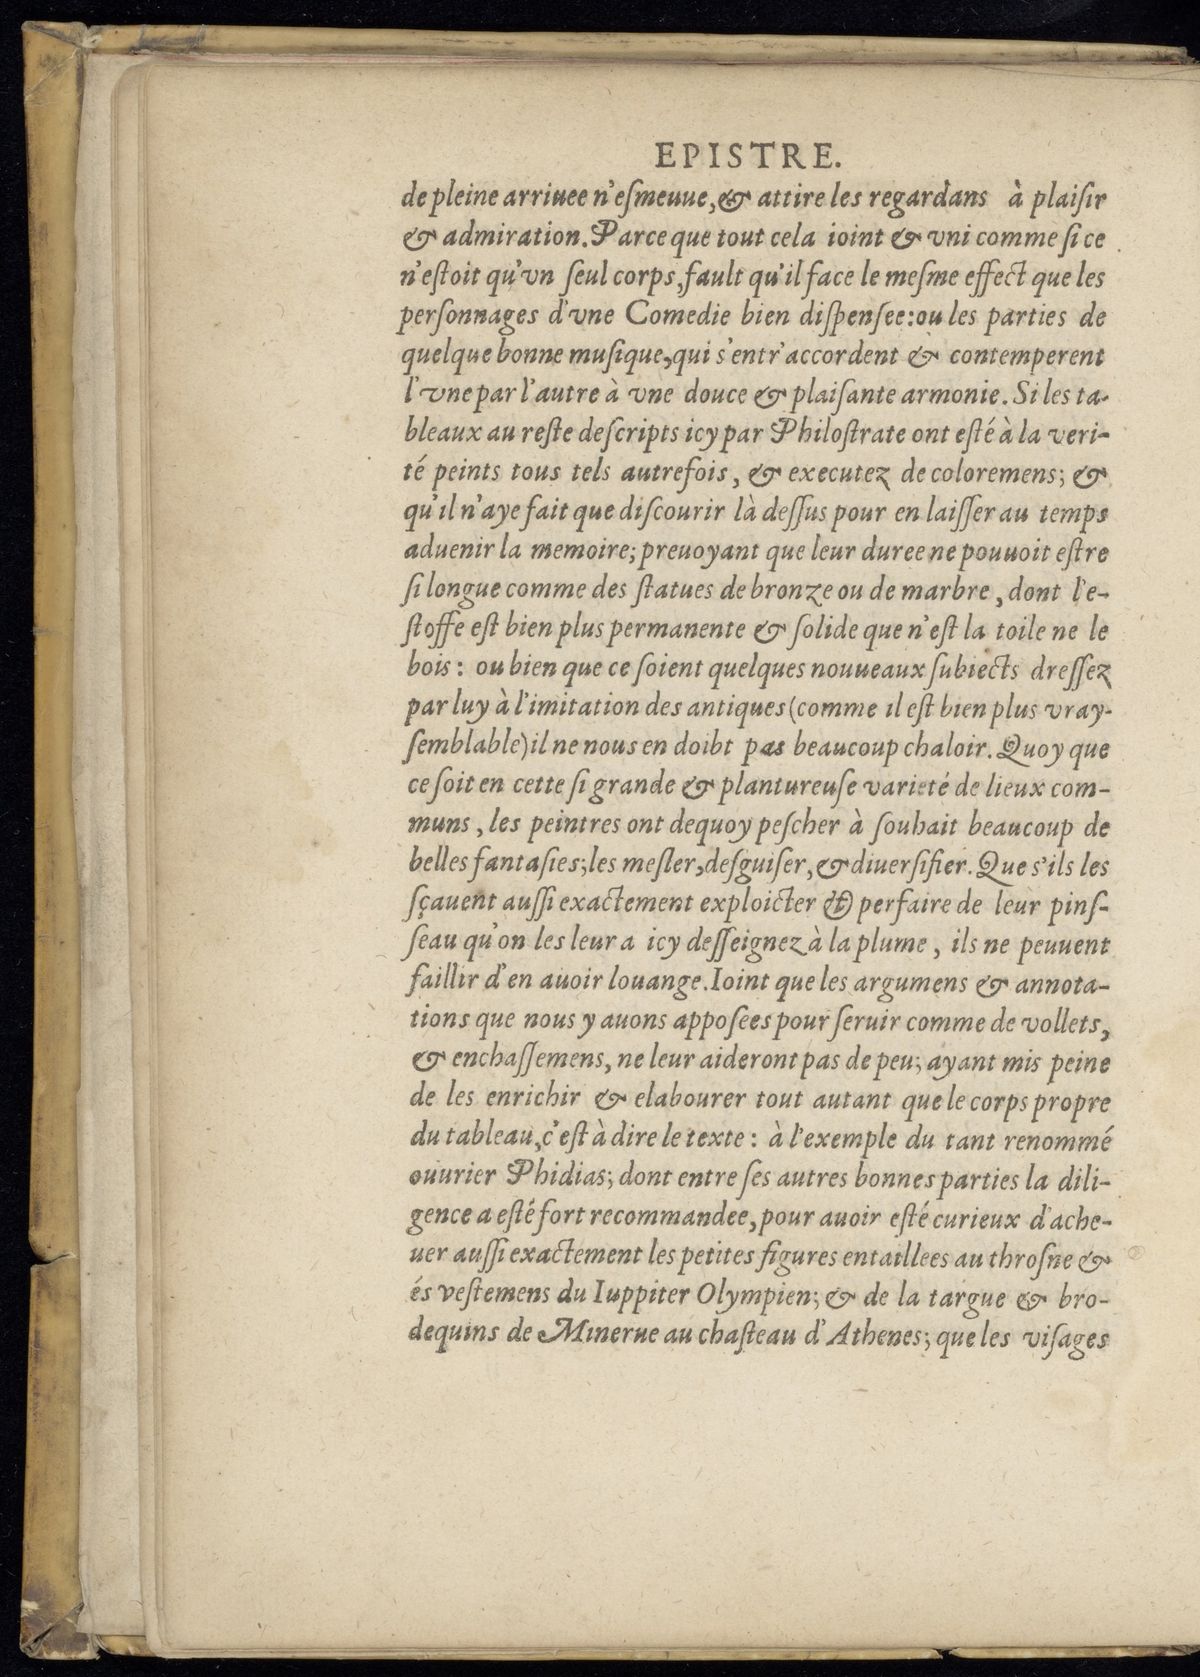 EPISTRE.
de pleine arriuee n'eſmeuue, & attire les regardans à plaiſir
& admiration. Parce que tout cela ioint & vni comme ſi ce
n'eſtoit qu'vn ſeul corps, fault qu'il face le meſme effect que les
perſonnages d'vne Comedie bien diſpenſee: ou les parties de
quelque bonne muſique, qui s'entr'accordent & contemperent
l'vne par l'autre à vne douce & plaiſante armonie. Si les ta-
bleaux au reſte deſcripts icy par Philoſtrate ont eſté à la veri-
té peints tous tels autrefois, & executez de coloremens; &
qu'il n'aye fait que diſcourir là deſſus pour en laiſſer au temps
aduenir la memoire; preuoyant que leur duree ne pouuoit eſtre
ſi longue comme des ſtatues de bronze ou de marbre, dont l'e-
ſtoffe eſt bien plus permanente & ſolide que n'eſt la toile ne le
bois: ou bien que ce ſoient quelques nouueaux ſubiects dreſſez
par luy à l'imitation des antiques (comme il eſt bien plus vray-
ſemblable) il ne nous en doibt pas beaucoup chaloir. Quoy que
ce ſoit en cette ſi grande & plantureuſe varieté de lieux com-
muns, les peintres ont dequoy peſcher à ſouhait beaucoup de
belles fantaſies; les meſler, deſguiſer, & diuerſifier. Que s'ils les
ſçauent auſſi exactement exploicter & perfaire de leur pinſ-
ſeau qu'on les leur a icy deſſeignez à la plume, ils ne peuuent
faillir d'en auoir louange. Ioint que les argumens & annota-
tions que nous y auons appoſees pour ſeruir comme de vollets,
& enchaſſemens, ne leur aideront pas de peu; ayant mis peine
de les enrichir & elabourer tout autant que le corps propre
du tableau, c'eſt à dire le texte: à l'exemple du tant renommé
ouurier Phidias; dont entre ſes autres bonnes parties la dili-
gence a eſté fort recommandee, pour auoir eſté curieux d'ache-
uer auſſi exactement les petites figures entaillees au throſne &
és veſtemens du Iuppiter Olympien; & de la targue & bro-
dequins de Minerue au chaſteau d'Athenes; que les viſages